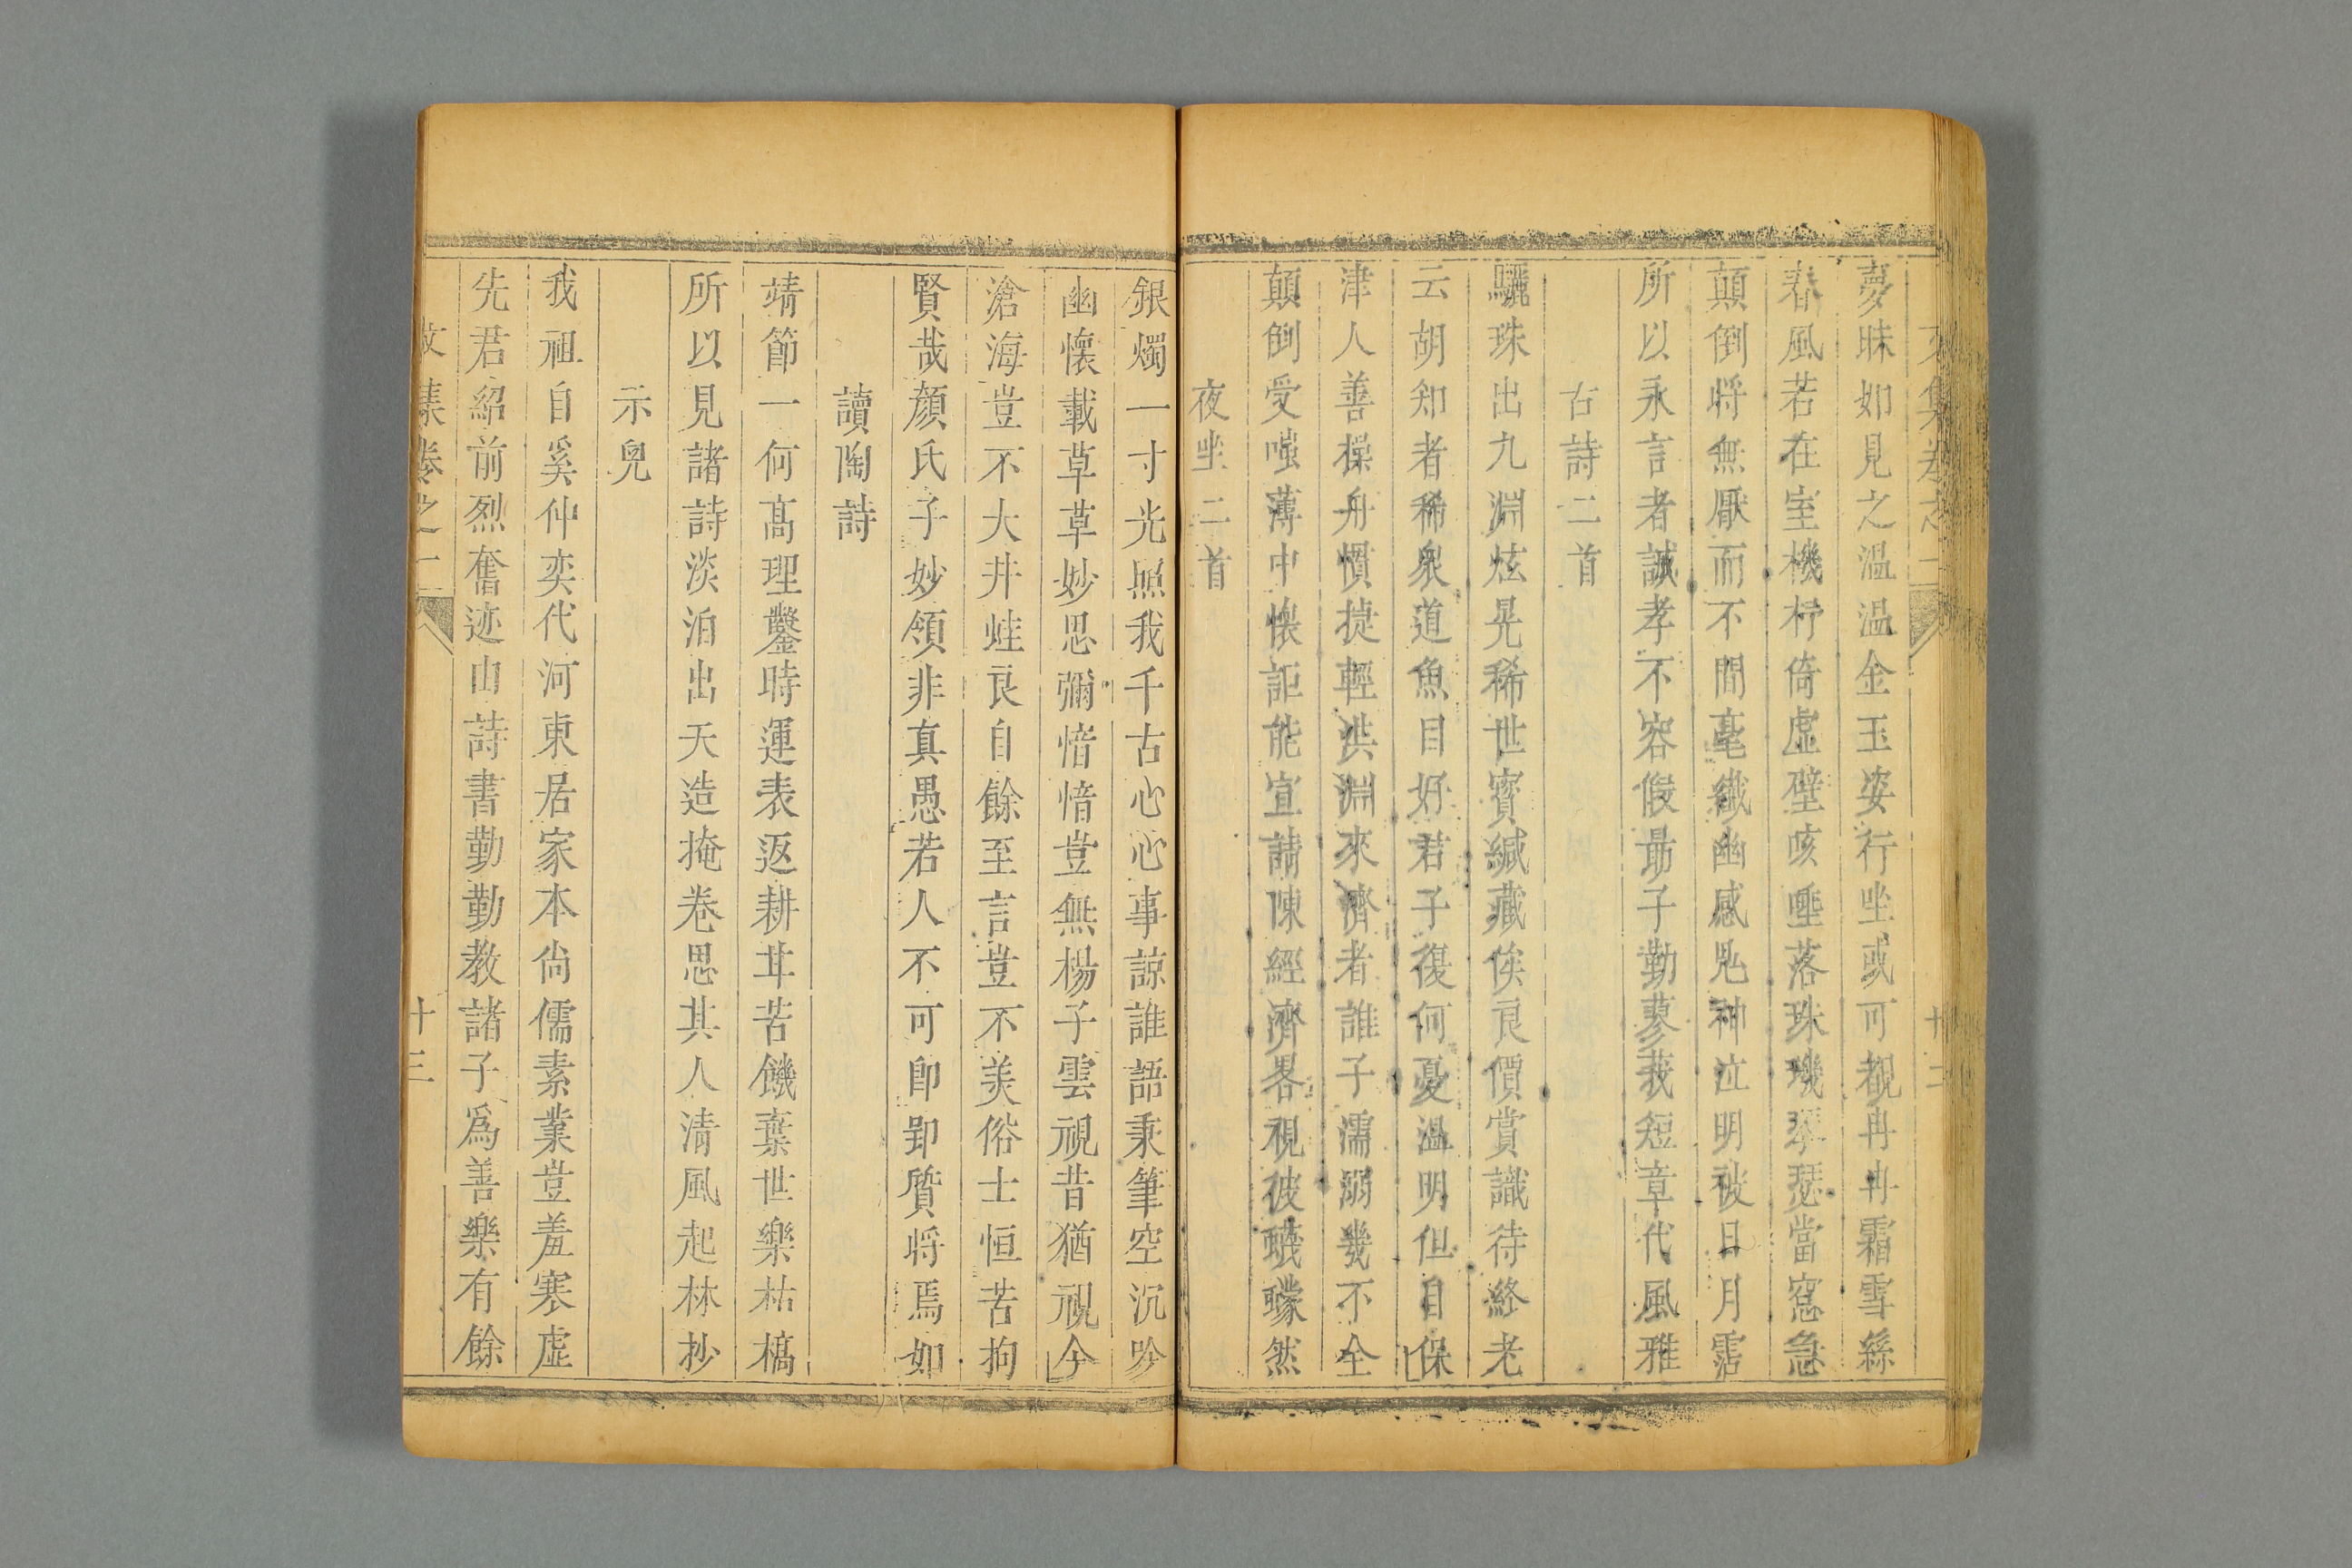 文集卷之二
十二
夢昧如見之溫溫金玉姿行坐或可覩冉冉霜雪絲
春風若在室機杼倚虛壁咳唾落珠璣琴瑟當窓急
顛倒将無厭而不間毫纖幽感鬼神泣明被日月霑
所以永言者誠孝不容假最子勤蓼莪短章代風雅
古詩二首
驪珠出九淵炫晃稀世寳緘藏俟良價賞識待終老
云胡知者稀衆道魚目好君子復何憂溫明但自保
津人善操舟慣捷輕洪淵來濟者誰子濡溺幾不全
顛倒受嗤薄中懐詎能宣請陳經濟畧視彼蠛蠓然
夜坐二首
銀燭一寸光照我千古心心事諒誰語秉筆空沉吟
幽懐載草草妙思彌愔愔豈無楊子雲視昔猶視今
滄海豈不大井蛙良自餘至言豈不美俗士恒苦拘
賢哉顔氏子妙領非真愚若人不可卽卽質将焉如
讀陶詩
靖節一何髙理鑿時運表返耕茸苦饑棄世樂枯槁
所以見諸詩淡泊出天造掩卷思其人清風起林抄
示兒
我祖自奚仲奕代河東居家本尚儒素業豈羞寒虛
先君紹前烈奮迹由詩書勤勤教諸子爲善樂有餘
文集卷之二
十三